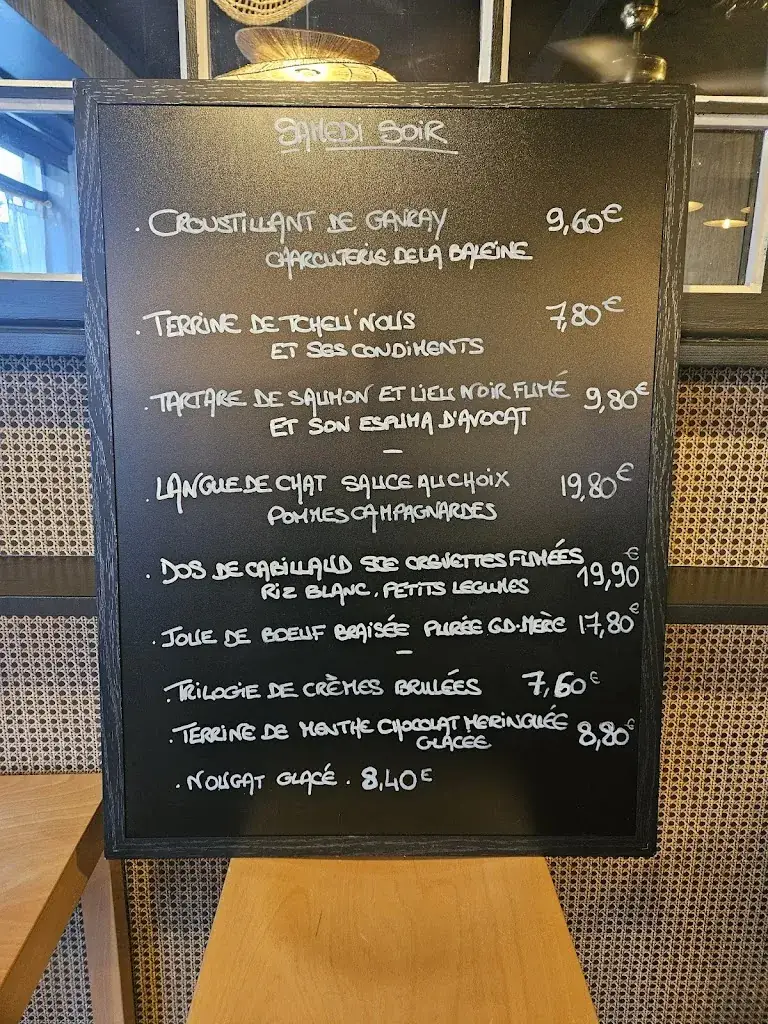 SAMEDI SOIR
. CROUSTILLANT DE GAVRAY 9,60€
CHARCUTERIE DE LA BALEINE
. TERRINE DE TCHELI'NOUS 7,80€
ET SES CONDIMENTS
. TARTARE DE SAUMON ET LIEU NOIR FUMÉ 9,80€
ET SON ESPUMA D'AVOCAT
–
. LANGUE DE CHAT SAUCE AU CHOIX 19,80€
POMMES CAMPAGNARDES
. DOS DE CABILLAUD SCE CREVETTES FUMÉES 19,90€
RIZ BLANC, PETITS LEGUMES
. JOUE DE BOEUF BRAISÉE PURÉE GD-MERE 17,80€
–
. TRILOGIE DE CRÈMES BRULÉES 7,60€
. TERRINE DE MENTHE CHOCOLAT MERINGUÉE 8,80€
GLACEE
. NOUGAT GLAÇÉ . 8,40€